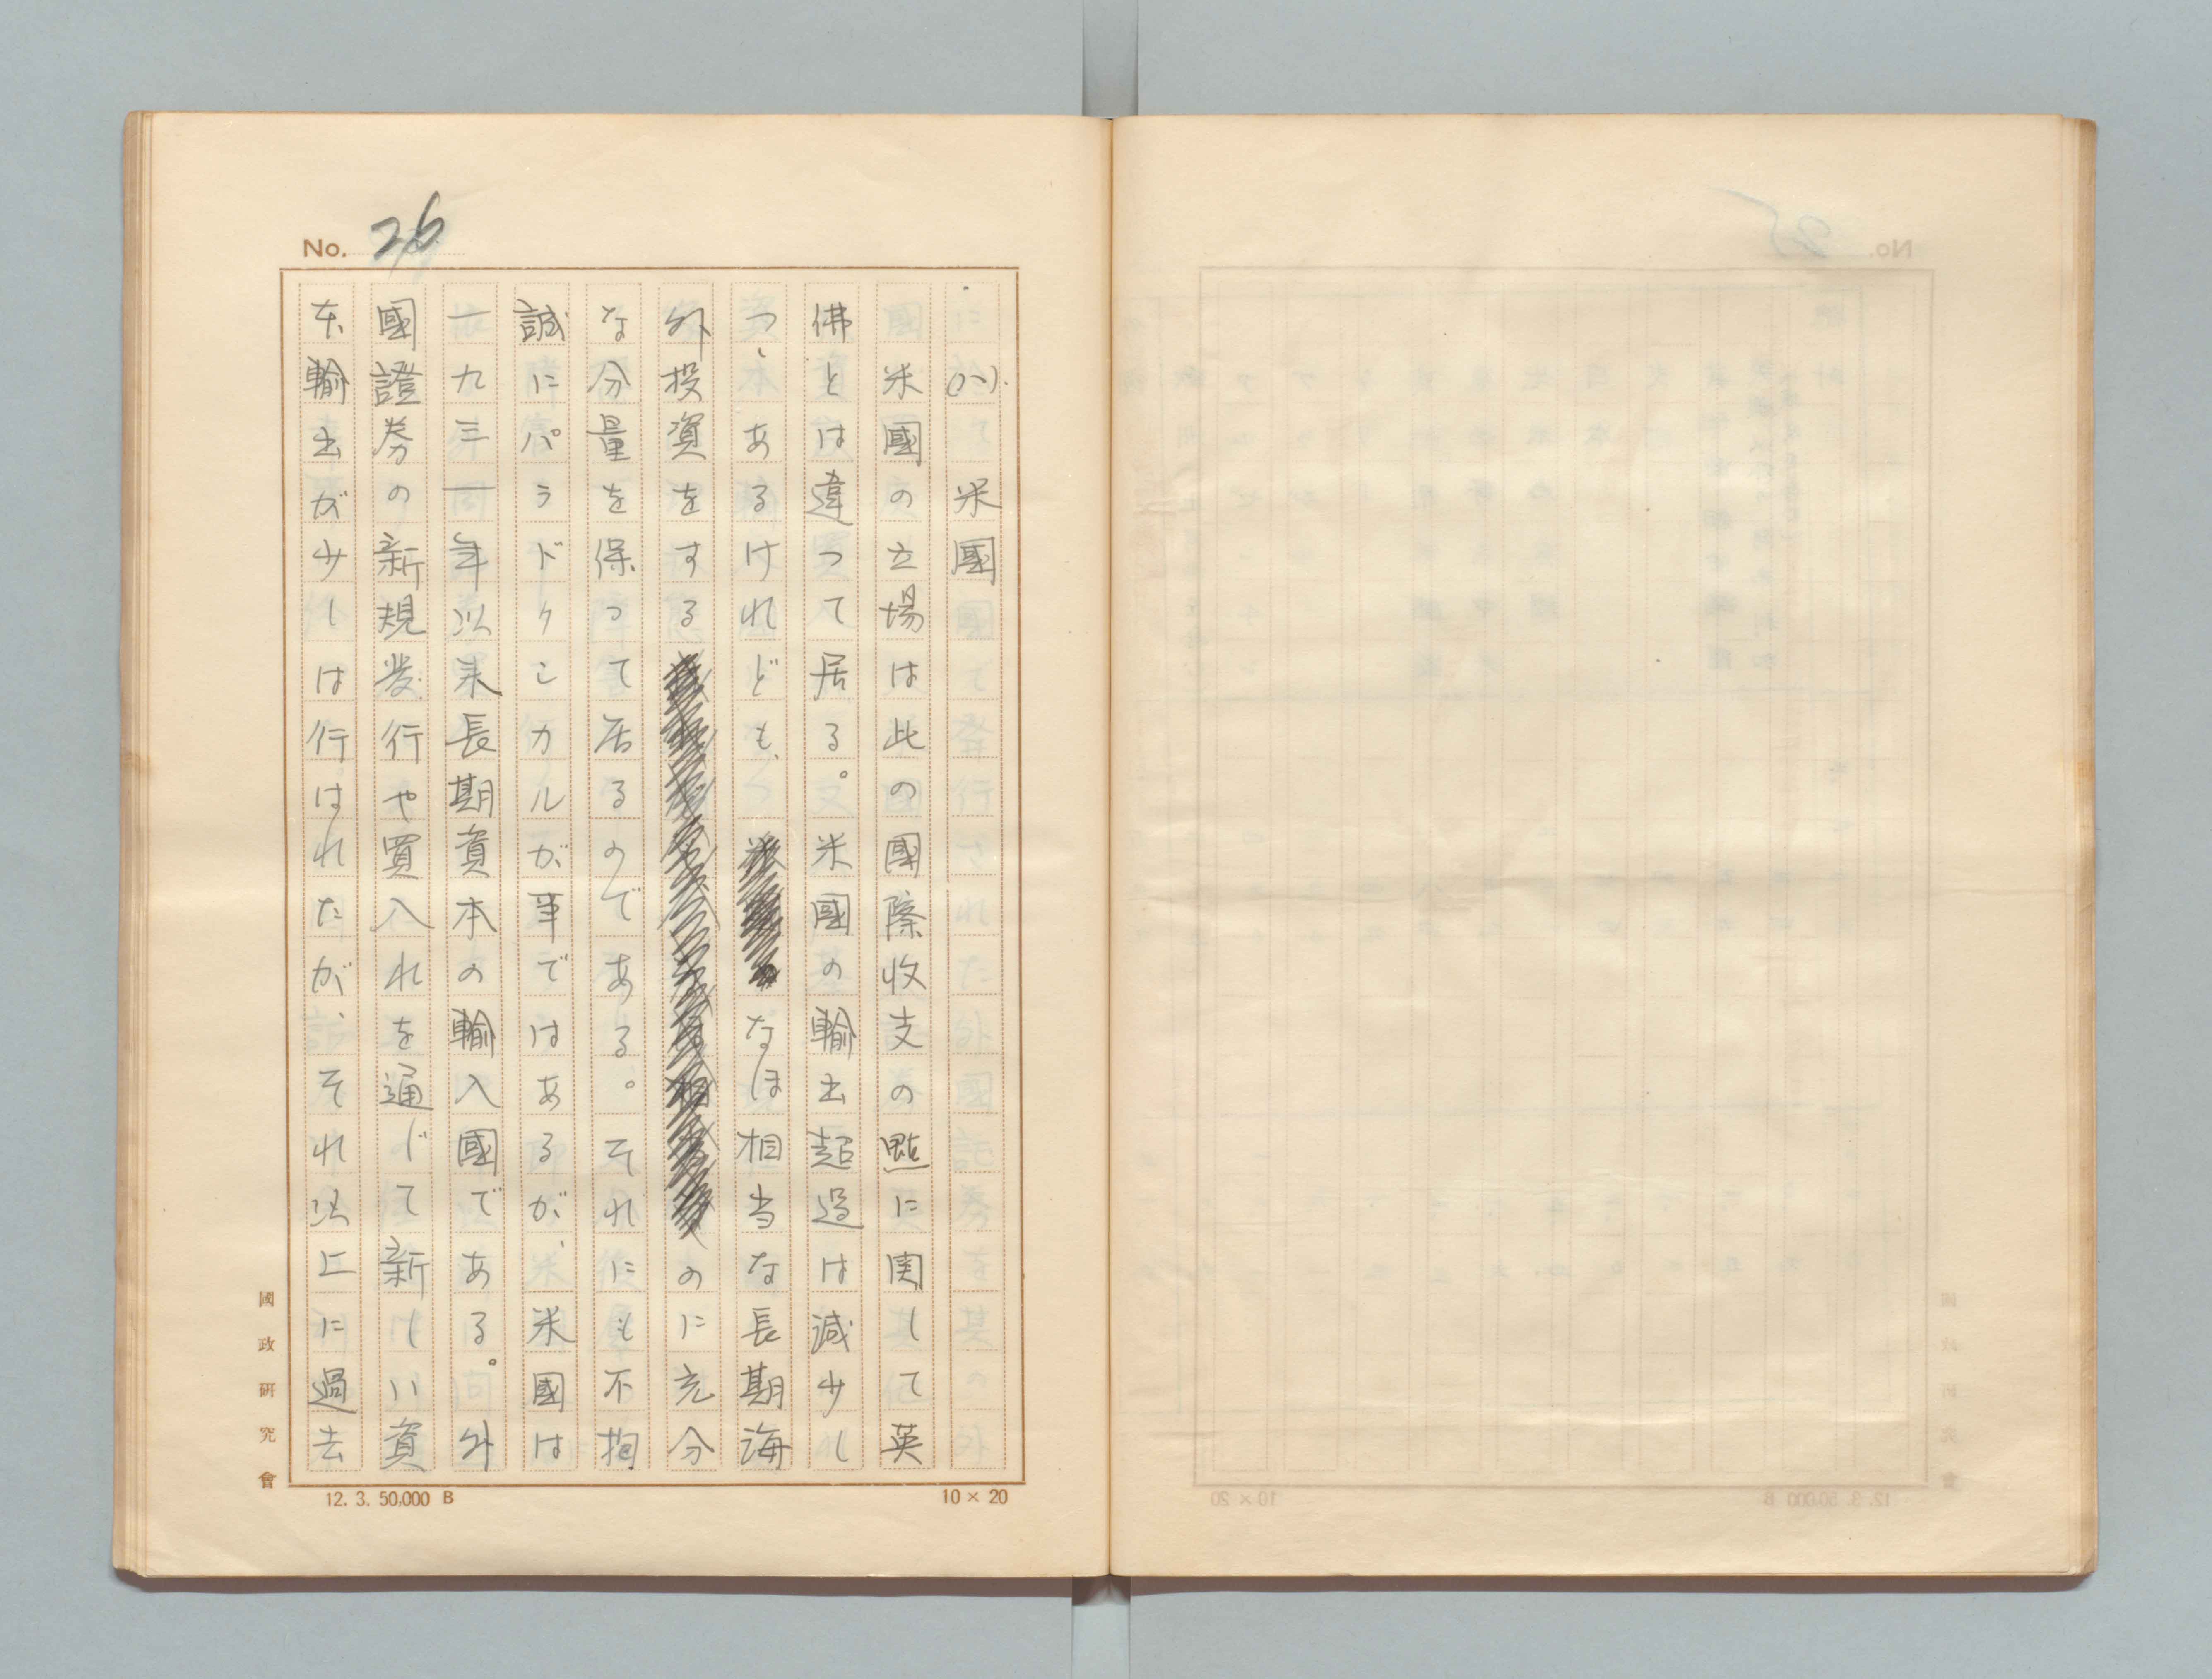 No. 26
(ハ). 米國
米國の立場は此の國際收支の點に関して英
佛とは違つて居る。米國の輸出超過は減少し
つゝあるけれども、なほ相当な長期海
外投資をするのに充分
な分量を保つて居るのである。それにも不拘
誠にパラドクシカルが事ではあるが、米國は
一九三一年以来長期資本の輸入國である。外
國證券の新規発行や買入れを通じて新しい資
本輸出が少しは行はれたが、それ以上に過去
國政研究會
12. 3. 50,000 B
10 × 20